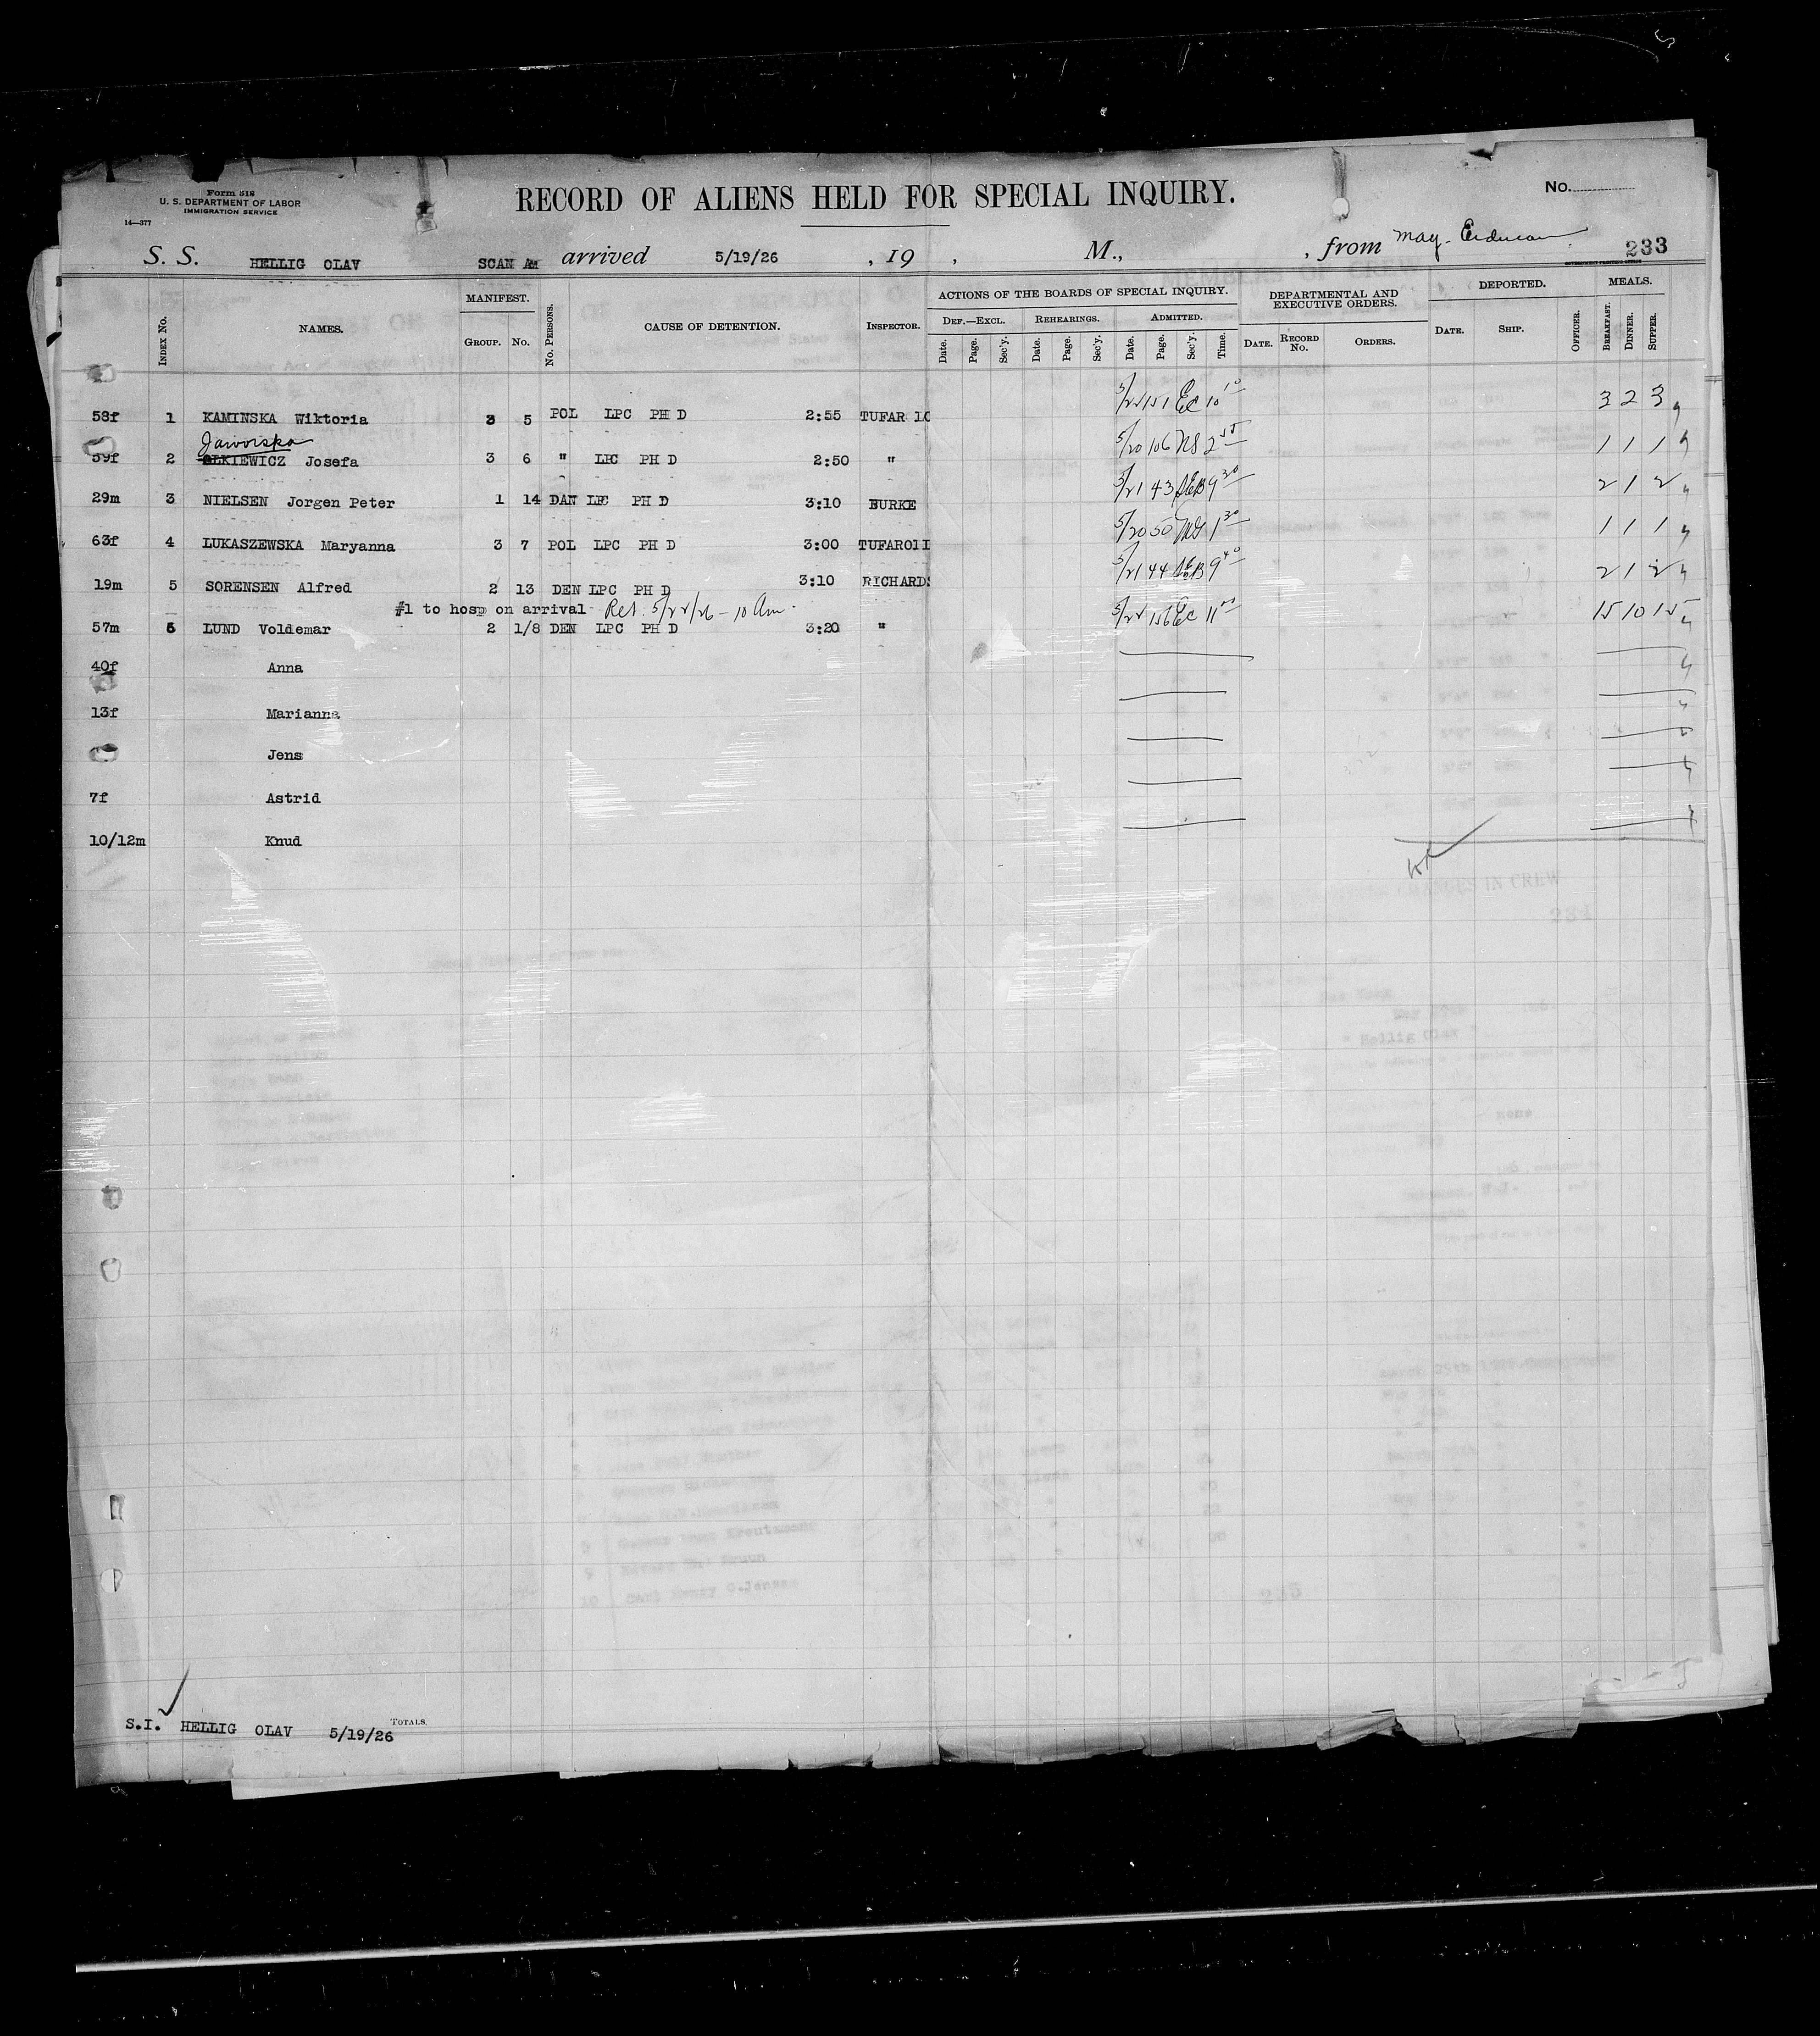 Form 518
U. S. DEPARTMENT OF LABOR
IMMIGRATION SERVICE
14—377
RECORD OF ALIENS HELD FOR SPECIAL INQUIRY.
No.
S. S. HELLIG OLAV SCAN AM arrived 5/19/26 , 19 , M., , from May 233
INDEX No. NAMES. MANIFEST. GROUP. No. No. PERSONS. CAUSE OF DETENTION. INSPECTOR. ACTIONS OF THE BOARDS OF SPECIAL INQUIRY. DEF.—EXCL. Date. Page. Sec'y. REHEARINGS. Date. Page. Sec'y. ADMITTED. Date. Page. Sec'y. Time. DEPARTMENTAL AND EXECUTIVE ORDERS. DATE. RECORD No. ORDERS. DEPORTED. DATE. SHIP. OFFICER. MEALS. BREAKFAST. DINNER. SUPPER.
58f 1 KAMINSKA Wiktoria 3 5 POL LPC PH D 2:55 TUFAR 5/22 151 EC 10 10 3 2 3
Jaworska
59f 2 LKIEWICZ Josefa 3 6 " LPC PH D 2:50 " 5/20 106 NS 2 55 1 1 1
29m 3 NIELSEN Jorgen Peter 1 14 DAN LPC PH D 3:10 BURKE 5/21 43 SEB 9 30 2 1 2
63f 4 LUKASZEWSKA Maryanna 3 7 POL LPC PH D 3:00 TUFAROII 5/20 50 1 30 1 1 1
19m 5 SORENSEN Alfred 2 13 DEN LPC PH D 3:10 RICHARDS 5/21 44 SEB 9 40 2 1 2
#1 to hosp on arrival Ret. 5/22/26 - 10 Am.
57m 6 LUND Voldemar 2 1/8 DEN LPC PH D 3:20 " 5/22 156 EC 11 15 10 15
40f Anna
13f Marianna
Jens
7f Astrid
10/12m Knud
TOTALS.
S.I. HELLIG OLAV 5/19/26